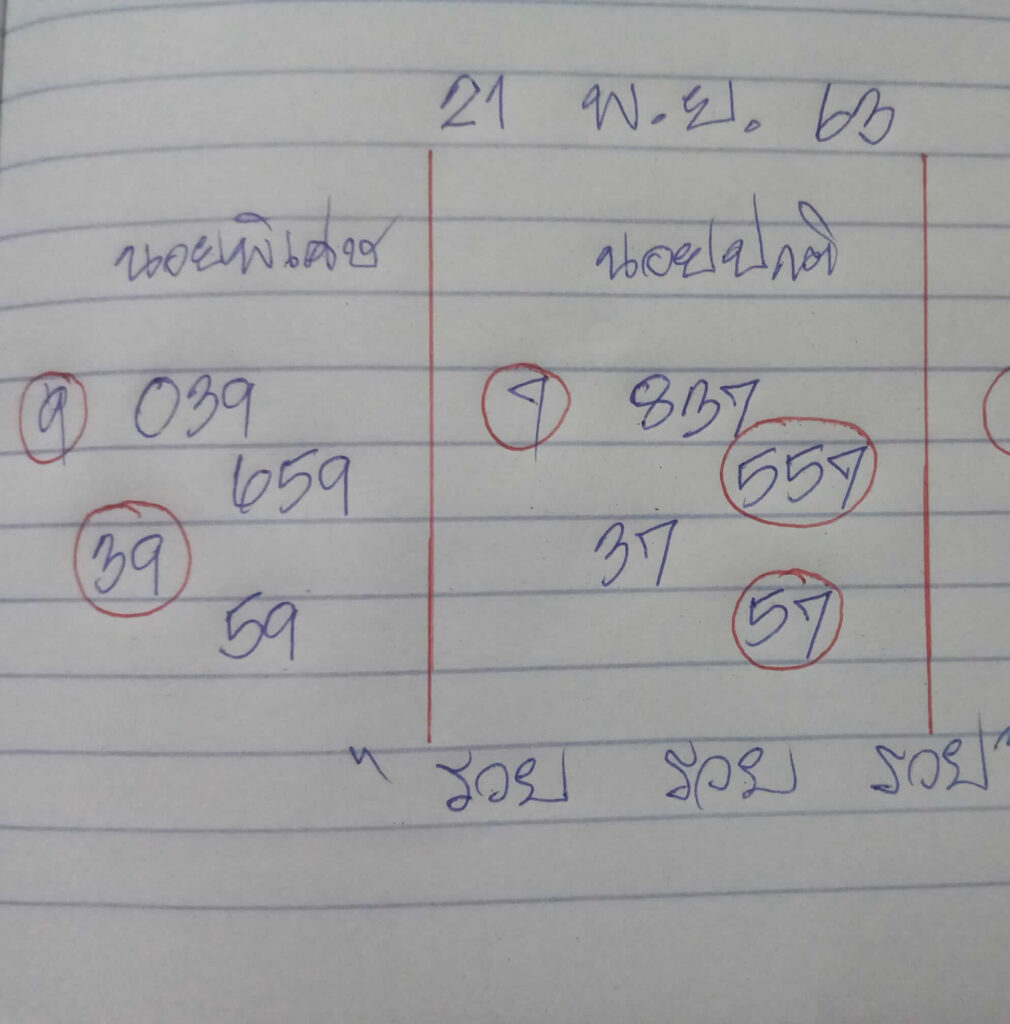 21 พ.ย. 63
นอยพิเศษ นอยปกติ
9 039 7 837
659 557
39 37
59 57
" รวย รวย รวย "